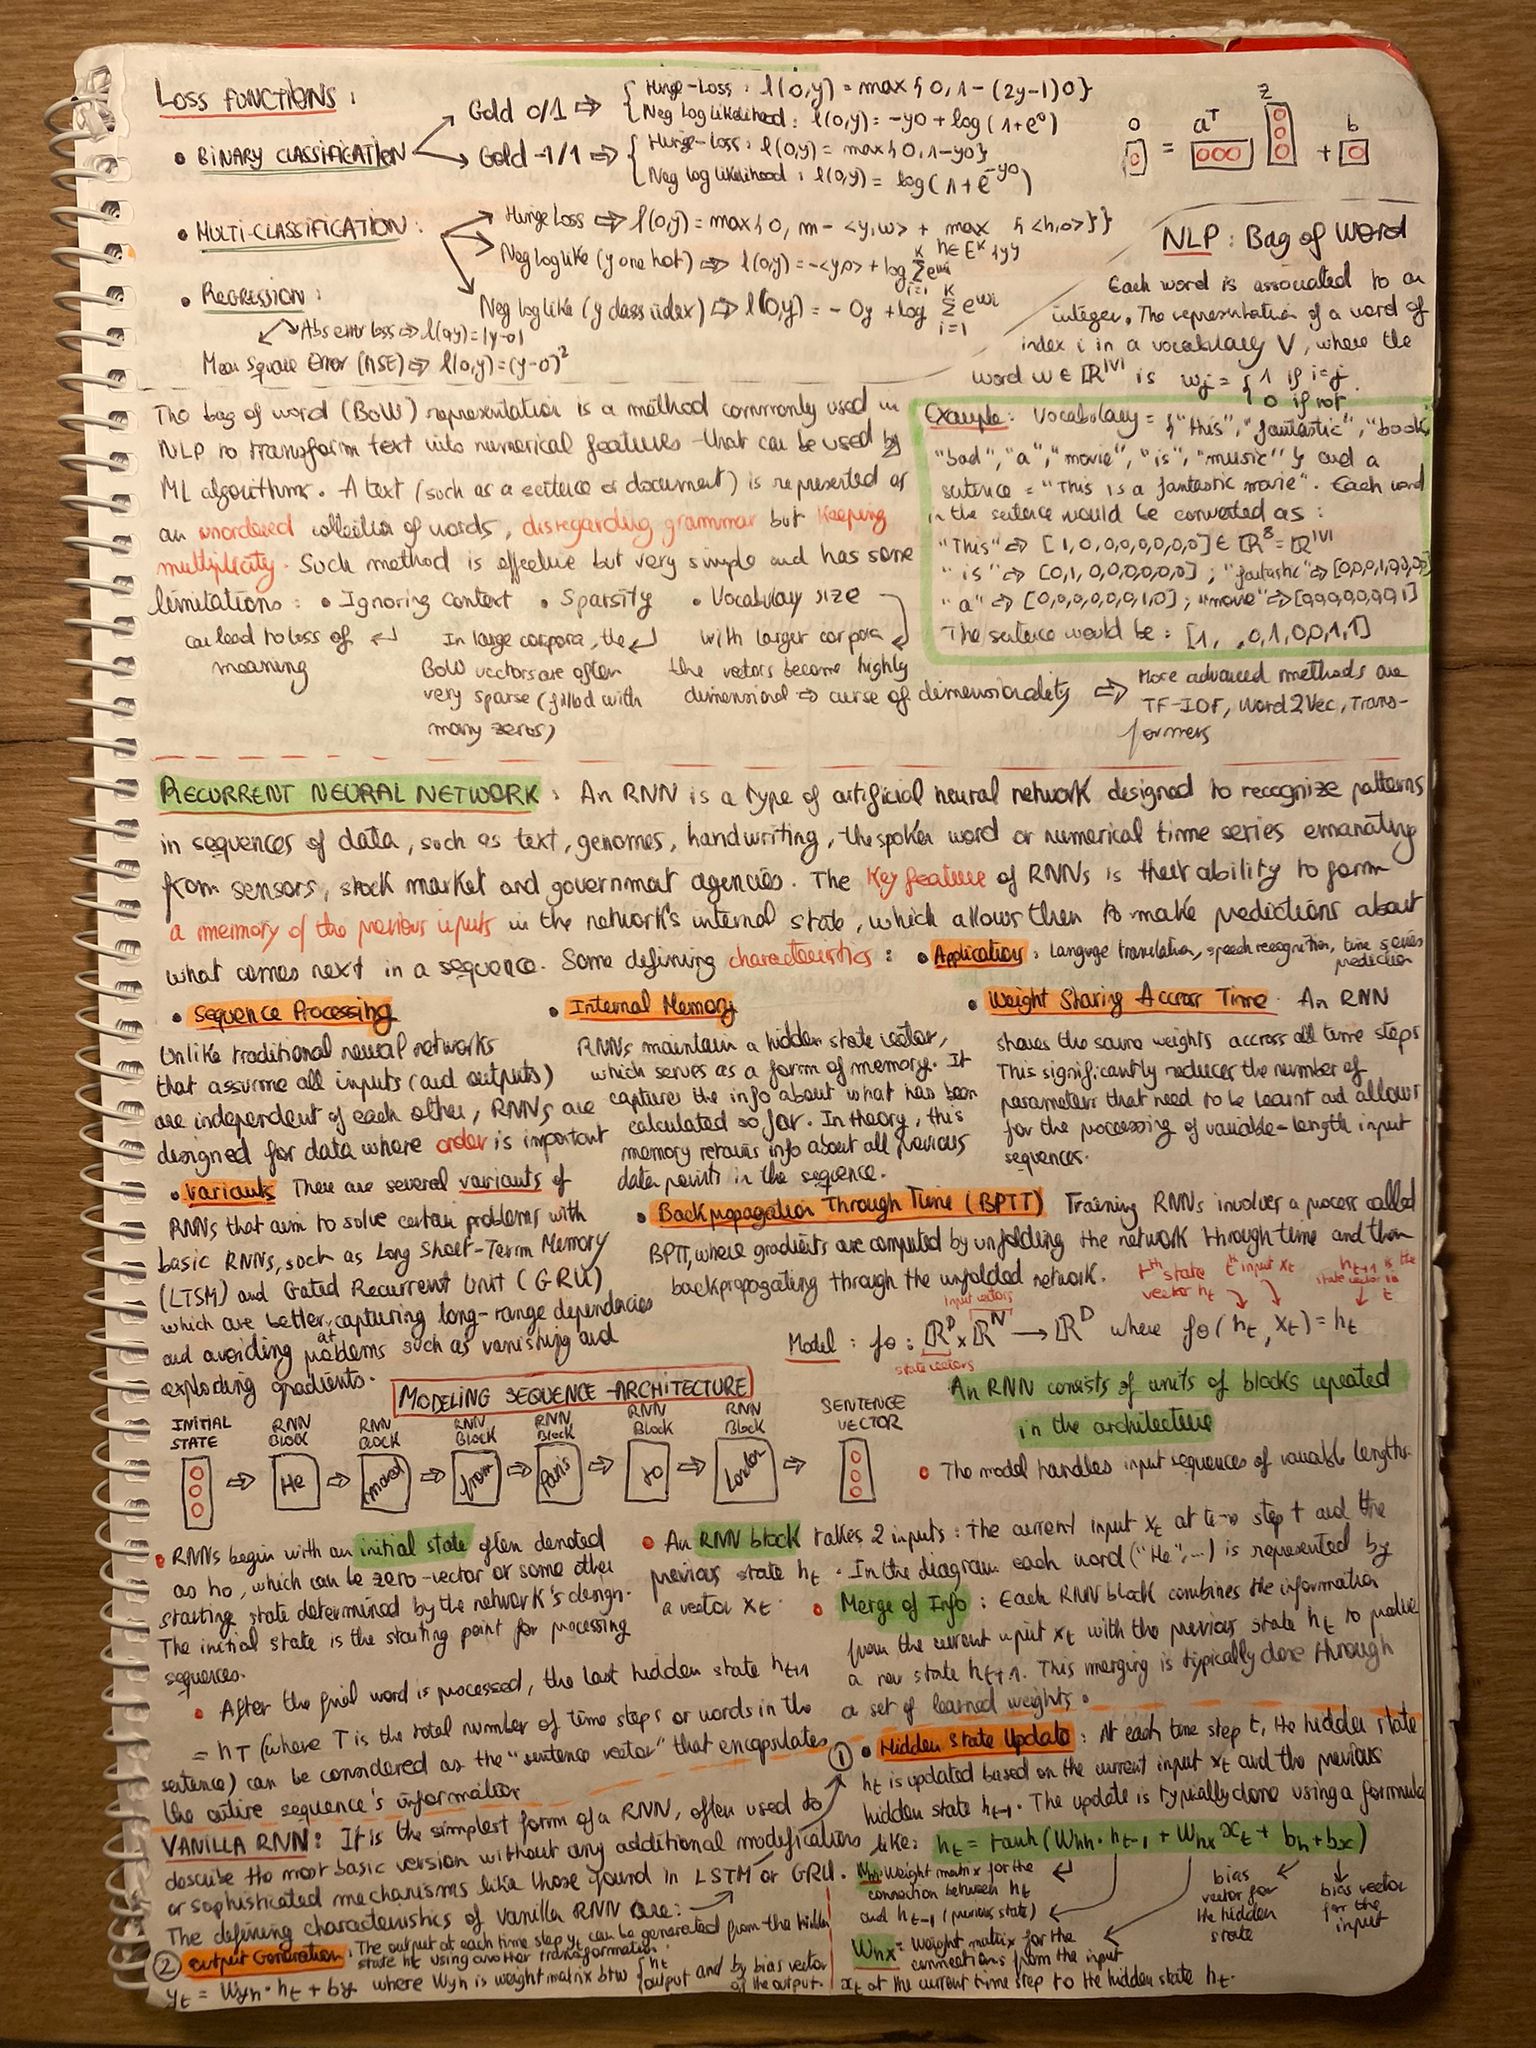 LOSS FUNCTIONS:
• BINARY CLASSIFICATION
Gold 0/1 ⇒ { Hinge-Loss: l(o,y) = max{0, 1-(2y-1)o}
Neg loglikelihood: l(o,y) = -yo + log(1+e^o)
Gold -1/1 ⇒ { Hinge-Loss: l(o,y) = max{0, 1-yo}
Neg loglikelihood: l(o,y) = log(1+e^-yo)
o = a^T z + b
• MULTI-CLASSIFICATION:
Hinge Loss ⇒ l(o,y) = max{0, m - <y,w> + max {<h,o>}}
h∈E^K\{y}
Negloglike (y one hot) ⇒ l(o,y) = -<yo> + log Σ_{i=1}^K e^wi
Neg loglike (y class index) ⇒ l(o,y) = -oy + log Σ_{i=1}^K e^wi
• REGRESSION:
Abs error loss ⇒ l(o,y) = |y-o|
Mean Square Error (MSE) ⇒ l(o,y) = (y-o)²
NLP: Bag of Word
Each word is associated to an
integer. The representation of a word of
index i in a vocabulary V, where the
word w ∈ ℝ^|V| is wj = { 1 if i=j
0 if not
The bag of word (BoW) representation is a method commonly used in
NLP to transform text into numerical features that can be used by
ML algorithms. A text (such as a sentence or document) is represented as
an unordered collection of words, disregarding grammar but keeping
multiplicity. Such method is effective but very simple and has some
limitations: • Ignoring context • Sparsity • Vocabulary size
can lead to loss of
meaning
In large corpora, the
BoW vectors are often
very sparse (filled with
many zeros)
with larger corpora
the vectors become highly
dimensional ⇒ curse of dimensionality ⇒ More advanced methods are
TF-IDF, Word2Vec, Trans-
formers
Example: Vocabulary = {"this", "fantastic", "book",
"bad", "a", "movie", "is", "music"} and a
sentence = "This is a fantastic movie". Each word
in the sentence would be converted as:
"This" ⇒ [1,0,0,0,0,0,0,0] ∈ ℝ^8 = ℝ^|V|
"is" ⇒ [0,1,0,0,0,0,0,0]; "fantastic" ⇒ [0,0,0,1,0,0,0]
"a" ⇒ [0,0,0,0,0,0,1,0]; "movie" ⇒ [0,0,0,0,0,0,0,1]
The sentence would be: [1, ,0,1,0,0,1,1]
RECURRENT NEURAL NETWORK: An RNN is a type of artificial neural network designed to recognize patterns
in sequences of data, such as text, genomes, handwriting, the spoken word or numerical time series emanating
from sensors, stock market and government agencies. The key feature of RNNs is their ability to form
a memory of the previous inputs in the network's internal state, which allows them to make predictions about
what comes next in a sequence. Some defining characteristics: • Application: language translation, speech recognition, time series
prediction
• Sequence Processing
Unlike traditional neural networks
that assume all inputs (and outputs)
are independent of each other, RNNs are
designed for data where order is important
• Internal Memory
RNNs maintain a hidden state vector,
which serves as a form of memory. It
captures the info about what has been
calculated so far. In theory, this
memory retains info about all previous
data points in the sequence.
• Weight Sharing Accross Time. An RNN
shares the same weights accross all time steps
This significantly reduces the number of
parameters that need to be learnt and allows
for the processing of variable-length input
sequences.
• Variants There are several variants of
RNNs that aim to solve certain problems with
basic RNNs, such as Long Short-Term Memory
(LTSM) and Gated Recurrent Unit (GRU)
which are better at capturing long-range dependencies
and avoiding problems such as vanishing and
exploding gradients.
• Backpropagation Through Time (BPTT) Training RNNs involves a process called
BPTT, where gradients are computed by unfolding the network through time and then
backpropagating through the unfolded network.
t^th state
vector ht
t^th input xt
h_t+1 is the
state vector in
t
input vectors
Model: fθ: ℝ^D × ℝ^N → ℝ^D where fθ(ht, xt) = ht
state vectors
MODELING SEQUENCE-ARCHITECTURE
INITIAL
STATE
RNN
BLOCK
RNN
BLOCK
RNN
Block
RNN
Block
RNN
Block
RNN
Block
SENTENCE
VECTOR
⇒ He ⇒ moved ⇒ from ⇒ Paris ⇒ to ⇒ London ⇒
An RNN consists of units of blocks repeated
in the architecture
• The model handles input sequences of variable lengths.
• RNNs begin with an initial state often denoted
as h0, which can be zero-vector or some other
starting state determined by the network's design.
The initial state is the starting point for processing
sequences.
• An RNN block takes 2 inputs: the current input xt at step t and the
previous state ht. In the diagram each word ("He",...) is represented by
a vector xt.
• Merge of Info: Each RNN block combines the information
from the current input xt with the previous state ht to produce
a new state ht+1. This merging is typically done through
a set of learned weights.
• After the final word is processed, the last hidden state ht+1
= hT (where T is the total number of time steps or words in the
sentence) can be considered as the "sentence vector" that encapsulates
the entire sequence's information
VANILLA RNN: It is the simplest form of a RNN, often used to
describe the most basic version without any additional modifications
or sophisticated mechanisms like those found in LSTM or GRU.
The defining characteristics of Vanilla RNN are:
① • Hidden State Update: At each time step t, the hidden state
ht is updated based on the current input xt and the previous
hidden state ht-1. The update is typically done using a formula
like: ht = tanh(Whh·ht-1 + Whx xt + bh + bx)
Whh: Weight matrix for the
connection between ht
and ht-1 (previous state)
bias
vector for
the hidden
state
bias vector
for the
input
Whx = Weight matrix for the
connections from the input
xt at the current time step to the hidden state ht.
② Output Generation: The output at each time step yt can be generated from the hidden
state ht using another transformation:
yt = Wyh·ht + by where Wyh is weight matrix btw { ht
output and by bias vector
of the output.